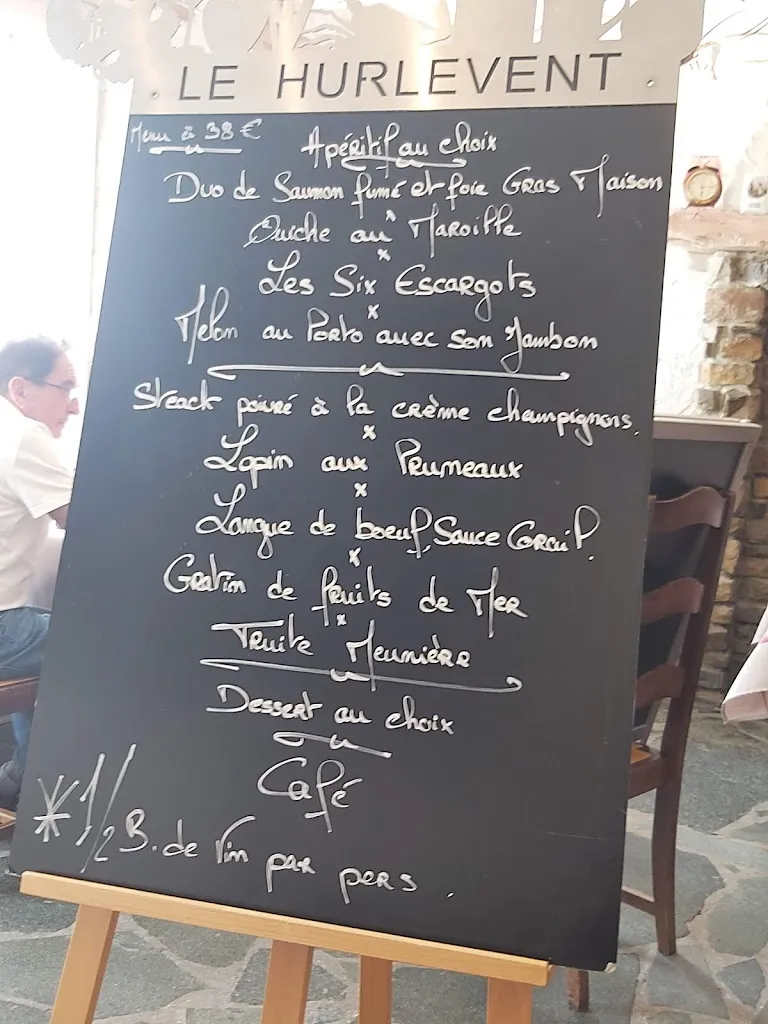 LE HURLEVENT
Menu à 38 €
Apéritif au choix
Duo de Saumon fumé et foie Gras Maison
x
Quiche au Maroille
x
Les Six Escargots
x
Melon au Porto avec son Jambon
Steack poivré à la crème champignons.
x
Lapin aux Pruneaux
x
Langue de boeuf, Sauce
x
Gratin de fruits de Mer
x
Truite Meunière
Dessert au choix
Café
* 1/2 B. de Vin par pers.